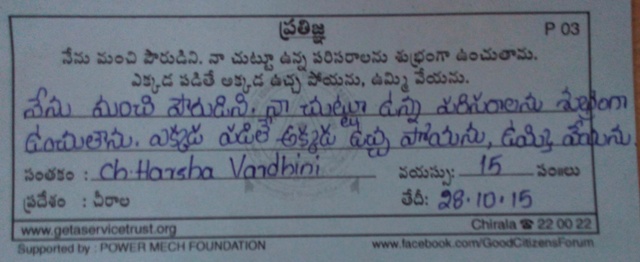 ప్రతిజ్ఞ P 03
నేను మంచి పౌరుడిని. నా చుట్టూ ఉన్న పరిసరాలను శుభ్రంగా ఉంచుతాను.
ఎక్కడ పడితే అక్కడ ఉచ్చ పోయను, ఉమ్మి వేయను.
నేను మంచి పౌరుడిని. నా చుట్టూ ఉన్న పరిసరాలను శుభ్రంగా
ఉంచుతాను. ఎక్కడ పడితే అక్కడ ఉచ్చ పోయను, ఉమ్మి వేయను
సంతకం : Ch. Harsha Vardhini వయస్సు: 15 సం॥లు
ప్రదేశం : చీరాల తేదీ: 28.10.15
www.getaservicetrust.org Chirala ☎ 22 00 22
Supported by : POWER MECH FOUNDATION www.facebook.com/GoodCitizensForum